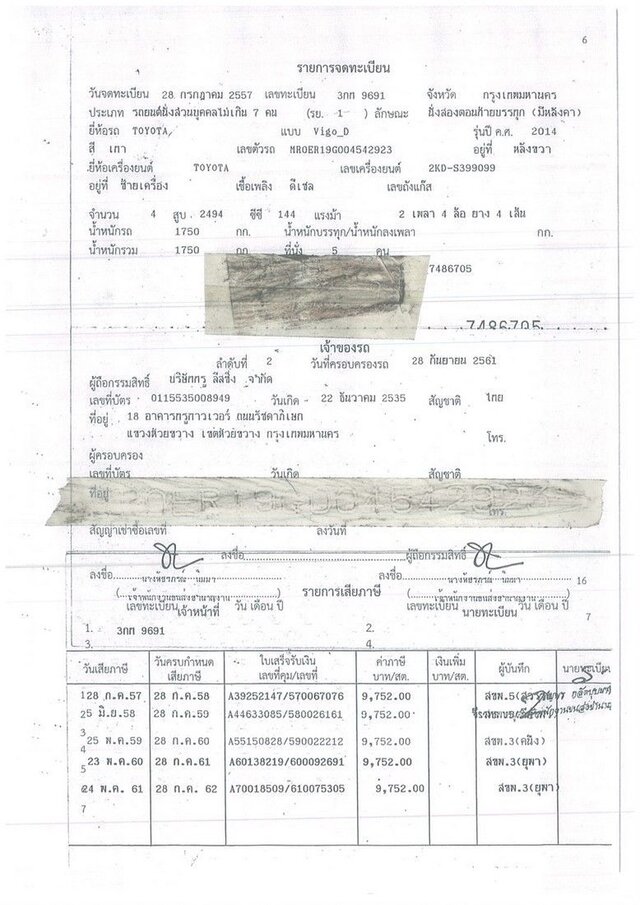 6
รายการจดทะเบียน
วันจดทะเบียน 28 กรกฎาคม 2557 เลขทะเบียน 3กก 9691 จังหวัด กรุงเทพมหานคร
ประเภท รถยนต์นั่งส่วนบุคคลไม่เกิน 7 คน (รย. 1 ) ลักษณะ นั่งสองตอนท้ายบรรทุก (มีหลังคา)
ยี่ห้อรถ TOYOTA แบบ Vigo_D รุ่นปี ค.ศ. 2014
สี เทา เลขตัวรถ MR0ER19G004542923 อยู่ที่ หลังขวา
ยี่ห้อเครื่องยนต์ TOYOTA เลขเครื่องยนต์ 2KD-S399099
อยู่ที่ ซ้ายเครื่อง เชื้อเพลิง ดีเซล เลขถังแก๊ส
จำนวน 4 สูบ 2494 ซีซี 144 แรงม้า 2 เพลา 4 ล้อ ยาง 4 เส้น
น้ำหนักรถ 1750 กก. น้ำหนักบรรทุก/น้ำหนักลงเพลา กก.
น้ำหนักรวม 1750 กก ที่นั่ง 5 คน
7486705
7486705
เจ้าของรถ
ลำดับที่ 2 วันที่ครอบครองรถ 28 กันยายน 2561
ผู้ถือกรรมสิทธิ์ บริษัทกรุ ลีสซิ่ง จำกัด
เลขที่บัตร 0115535008949 วันเกิด 22 ธันวาคม 2535 สัญชาติ ไทย
ที่อยู่ 18 อาคารทรูทาวเวอร์ ถนนรัชดาภิเษก
แขวงห้วยขวาง เขตห้วยขวาง กรุงเทพมหานคร โทร.
ผู้ครอบครอง
เลขที่บัตร วันเกิด สัญชาติ
ที่อยู่
โทร.
สัญญาเช่าซื้อเลขที่ ลงวันที่
ลงชื่อ ผู้ถือกรรมสิทธิ์
ลงชื่อ ลงชื่อ 16
รายการเสียภาษี
เลขทะเบียน เจ้าหน้าที่ วัน เดือน ปี เลขทะเบียน นายทะเบียน วัน เดือน ปี 7
1. 3กก 9691 2.
3. 4.
วันเสียภาษี วันครบกำหนดเสียภาษี ใบเสร็จรับเงิน เลขที่คุม/เลขที่ ค่าภาษี บาท/สต. เงินเพิ่ม บาท/สต. ผู้บันทึก นายทะเบียน
128 ก.ค.57 28 ก.ค.58 A39252147/570067076 9,752.00
25 มิ.ย.58 28 ก.ค.59 A44633085/580026161 9,752.00
3
25 พ.ค.59 28 ก.ค.60 A55150828/590022212 9,752.00
4
23 พ.ค.60 28 ก.ค.61 A60138219/600092691 9,752.00 สขพ.3(ยุพา)
5
24 พ.ค. 61 28 ก.ค. 62 A70018509/610075305 9,752.00 สขพ.3(ยุพา)
7